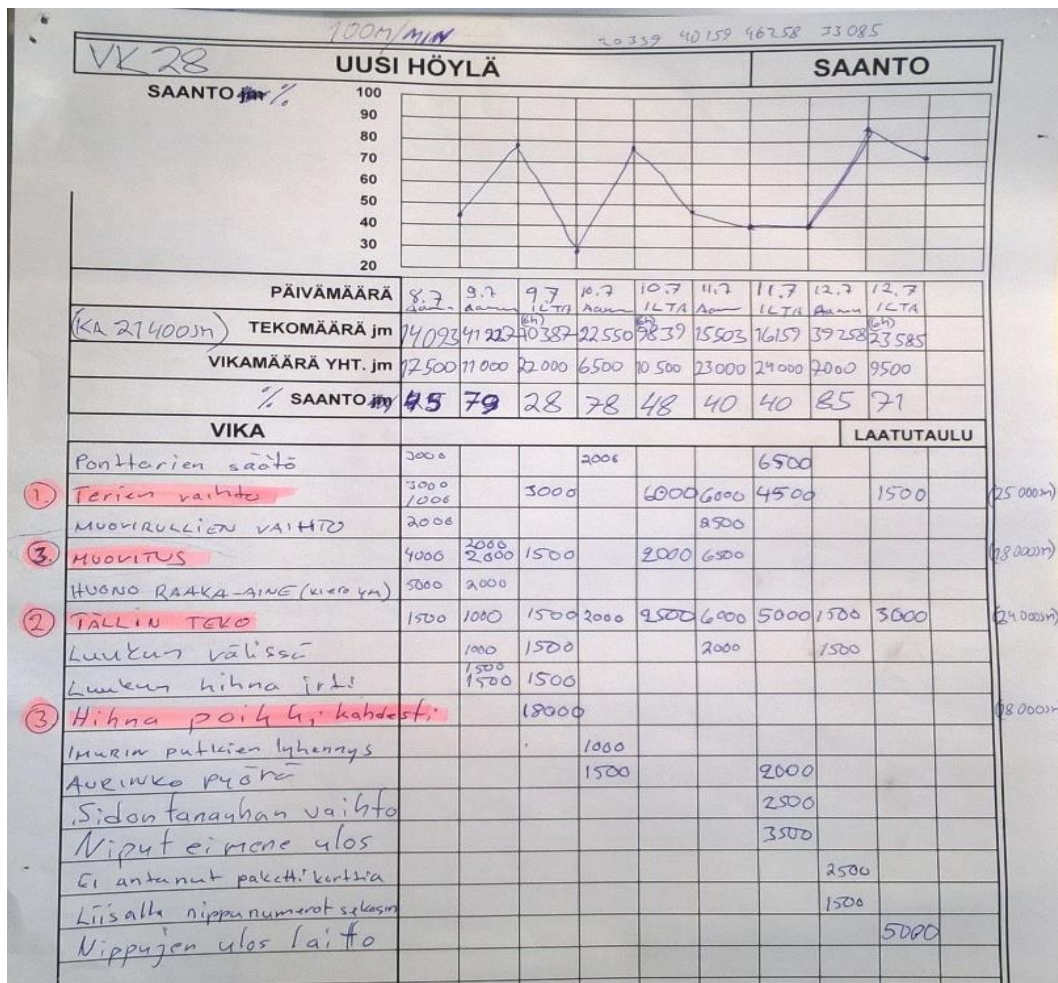 100m/MIN 20339 40159 46258 33085
VK 28 UUSI HÖYLÄ SAANTO
SAANTO %
100
90
80
70
60
50
40
30
20
PÄIVÄMÄÄRÄ 8.7 9.7 9.7 10.7 10.7 11.7 11.7 12.7 12.7
Aamu Aamu ILTA Aamu ILTA Aamu ILTA Aamu ILTA
(6h) (6h) (6h)
(KA 21400jm) TEKOMÄÄRÄ jm 14093 41227 10387 22550 9839 15503 16159 39258 23585
VIKAMÄÄRÄ YHT. jm 17500 11000 22000 6500 10500 23000 24000 7000 9500
% SAANTO 45 79 28 78 48 40 40 85 71
VIKA LAATUTAULU
Ponttarien säätö 3000 2000 6500
1. Terien vaihto 3000 1000 3000 6000 6000 4500 1500 (25000jm)
MUOVIRULLIEN VAIHTO 2000 2500
3. MUOVITUS 4000 2000 2000 1500 2000 6500 (18000jm)
HUONO RAAKA-AINE (kiero ym) 5000 2000
2 TÄLLIN TEKO 1500 1000 1500 2000 2500 6000 5000 1500 3000 (24000jm)
Luukun välissä 1000 1500 2000 1500
Luukun hihna irti 1500 1500 1500
3 Hihna poikki kahdesti 18000 (18000jm)
IMURIN putkien lyhennys 1000
AURINKO PYÖRÄ 1500 2000
Sidontanauhan vaihto 2500
Niput ei mene ulos 3500
Ei antanut pakettikorttia 2500
Liisalla nippunumerot sekasin 1500
Nippujen ulos laitto 5000